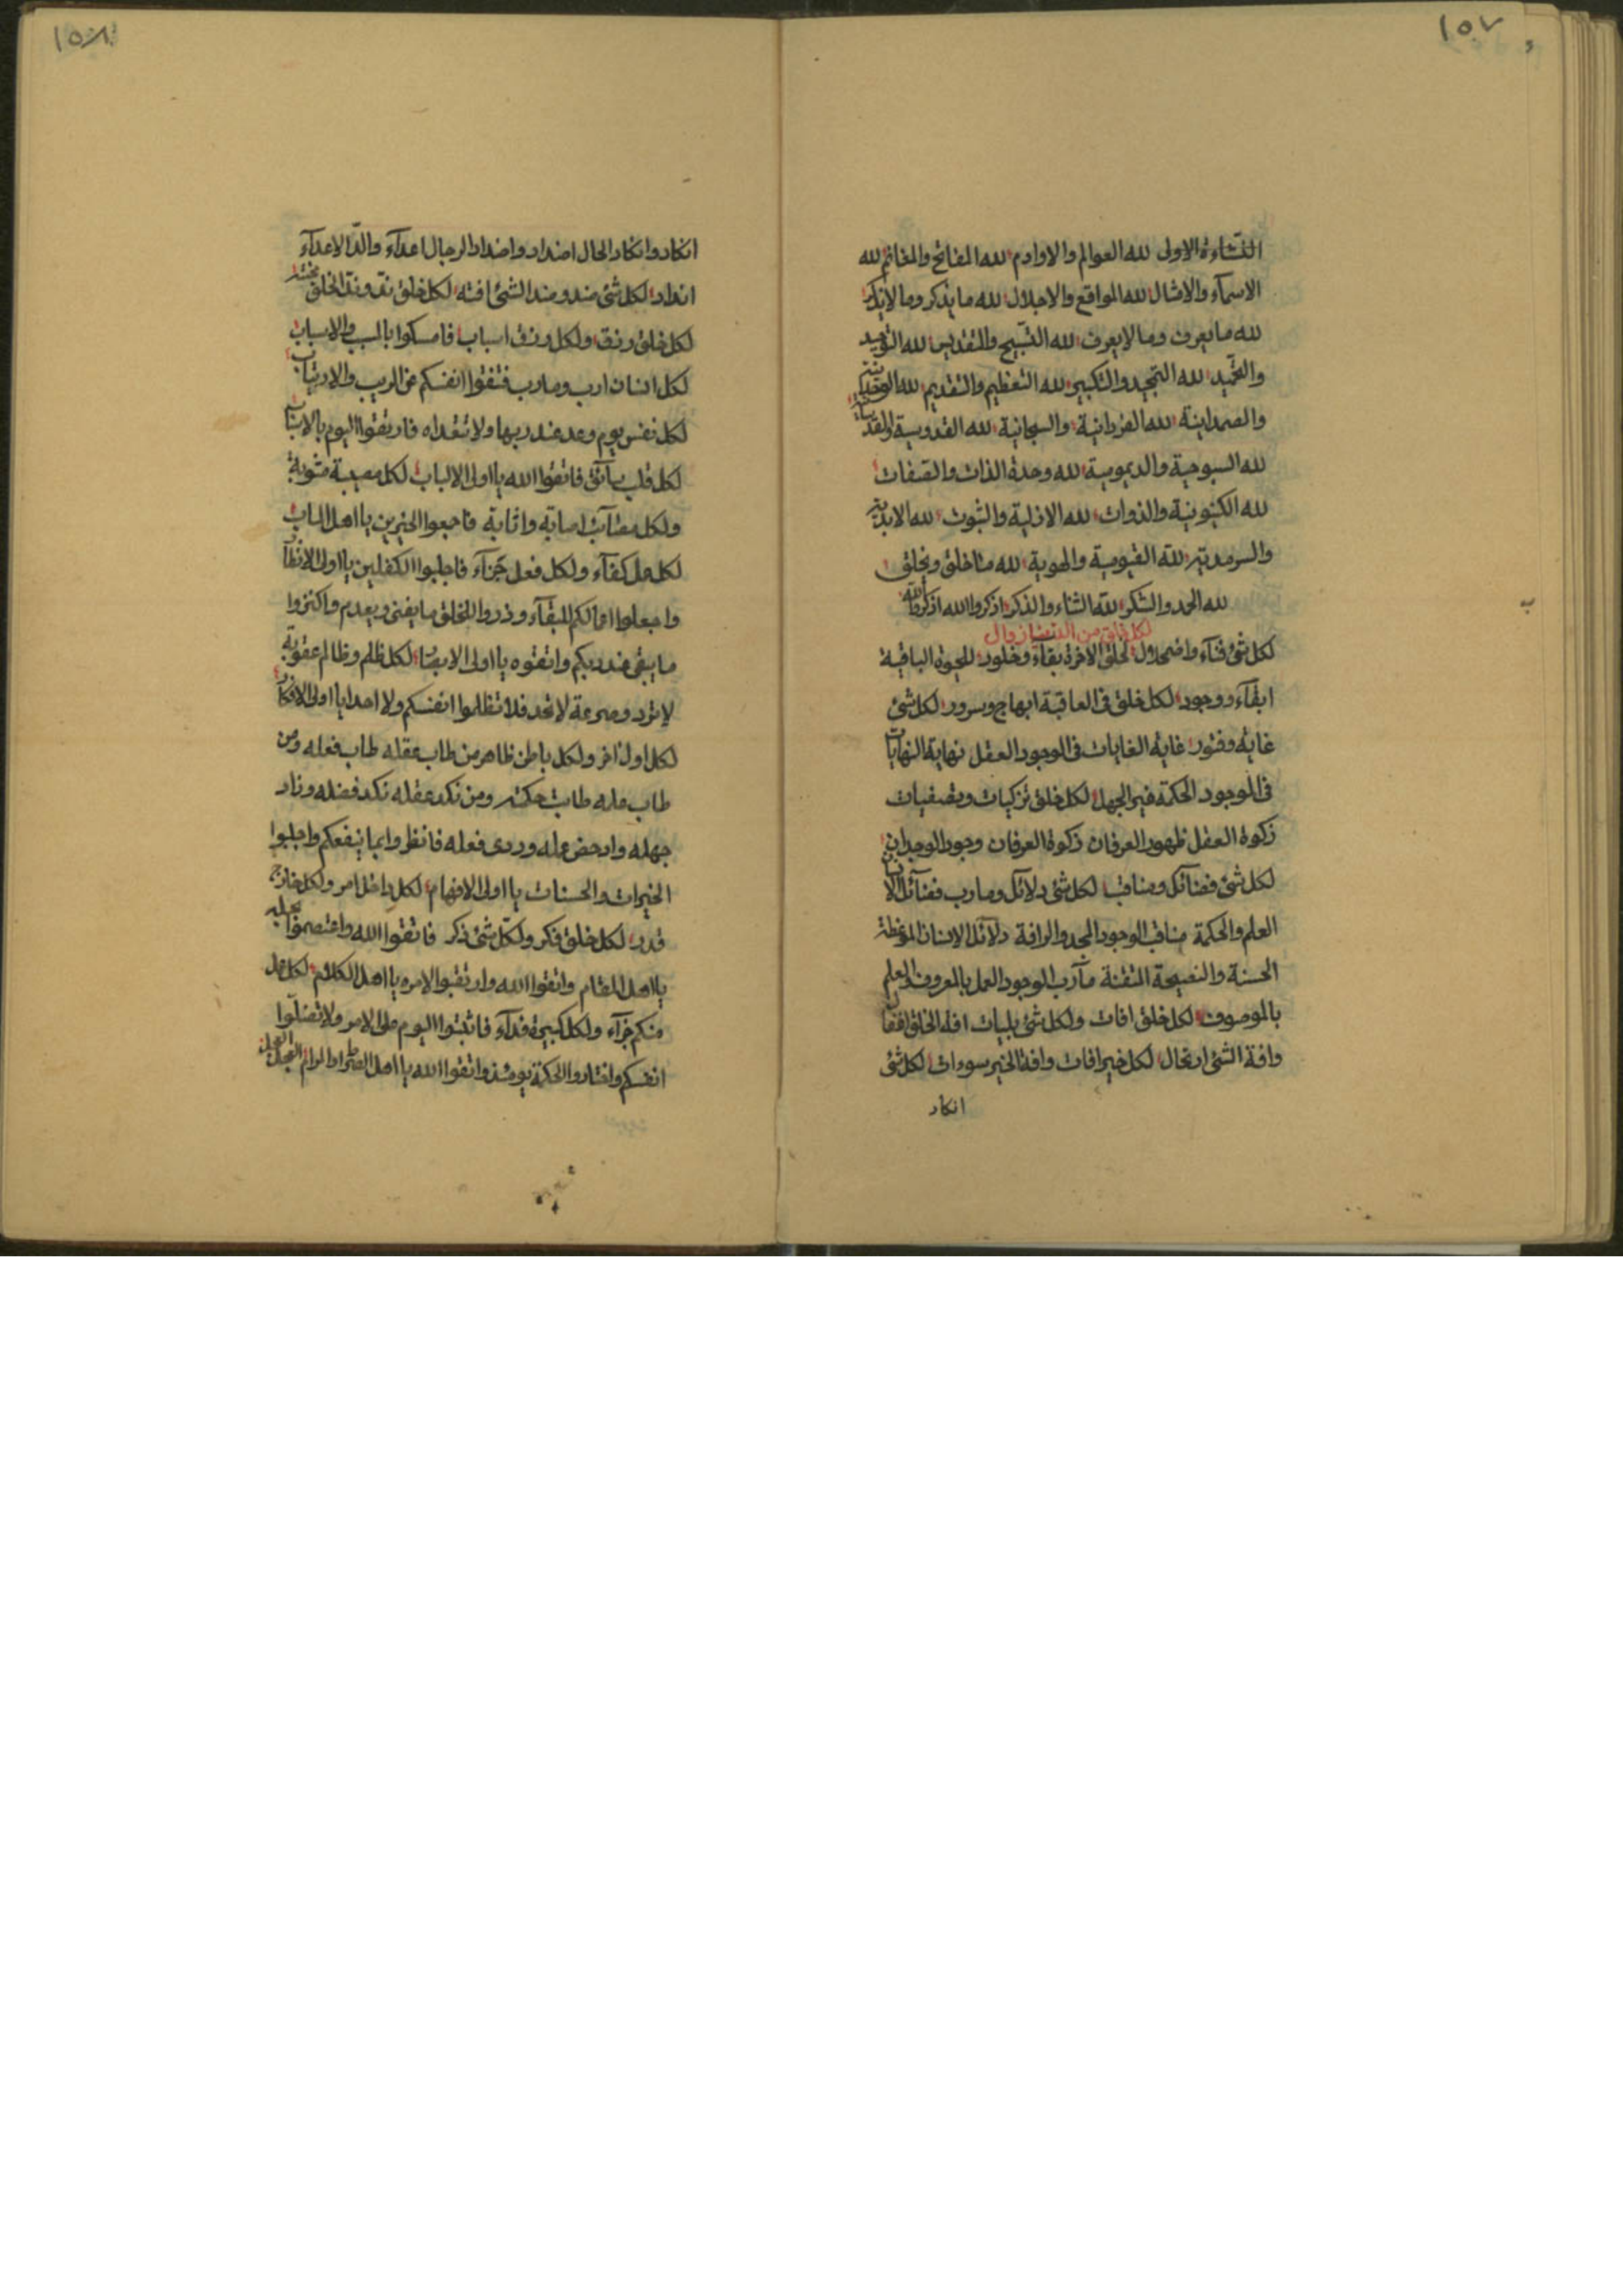 ١٥٧
النشاءة الاولى لله العوالم والاوادم لله المفاتح والمغانم لله
الاسمآء والامثال لله المواقع والاجلال لله ما يذكر وما لا يذكر
لله ما يعرف وما لا يعرف لله التسبيح والتقديس لله التوحيد
والتحميد لله التمجيد والتكبير لله التعظيم والتقديم لله
والصمدانية لله الفردانية والسبحانية لله القدوسية
لله السبوحية والديمومية لله وحدة الذات والصفات
لله الكينونية والذوات لله الازلية والثبوت لله الابدية
والسرمدية لله القيومية والهوية لله ما خلق ويخلق
لله الحمد والشكر لله الثناء والذكر اذكروا الله اذكروا الله
لكل خلق من الدنيا زوال
لكل شئ فنآء واضمحلال لخلق الاخرة بقآء وخلود للحيوة الباقية
ابقآء ووجود لكل خلق فى العاقبة ابهاج وسرور لكل شئ
غاية وفتور غاية الغايات فى الوجود العقل نهاية النهايات
فى الموجود الحكمة غير الجهل لكل خلق تزكيات وتصفيات
زكوة العقل ظهور العرفان زكوة العرفان وجود الوجدان
لكل شئ فضائل ومناقب لكل شئ دلائل ومارب فضآئل الانسان
العلم والحكمة مناقب الوجود المجد والرافة دلآئل الانسان الموعظة
الحسنة والنصيحة المتقنة مآرب الموجود العمل بالمعروف والعلم
بالموصوف لكل خلق افات ولكل شئ بليات افة الخلق
وافة الشئ ارتحال لكل خير افات وافة الخير سوءات لكل شئ
انكار
١٥٨
انكار وانكار الحال اضداد واضداد الرجال اعدآء والدّ الاعدآء
انداد لكل شئ ضد وضد الشئ افته لكل خلق
لكل خلق رزق ولكل رزق اسباب فامسكوا بالسبب والاسباب
لكل انسان ارب ومارب فتقوا انفسكم عن الريب والارتياب
لكل نفس يوم وعد عند ربها ولا تتعداه فارتقوا اليوم
لكل قلب فاتقوا الله يا اولى الالباب لكل مصيبة مثوبة
ولكل اصابة واثابة فاجمعوا الخيرين يا اهل الباب
لكل عمل كفآء ولكل فعل جزآء فاجلبوا الكفلين يا اولى الانظار
واجعلوا اعمالكم للبقآء وذروا للخلق ما يفنى ويعدم واكنزوا
ما يبقى عند ربكم واتقوه يا اولى الابصار لكل ظلم وظالم عقوبة
لا ترد وصرعة لا تحد فلا تظلموا انفسكم ولا احدا يا اولى الافكار
لكل اول اخر ولكل باطن ظاهر من طاب عقله طاب فعله ومن
طاب عمله طابت حكمته ومن نكد عقله نكد فضله وزاد
جهله وادحض عمله وردى فعله فانظروا بما ينفعكم واجلبوا
الخيرات والحسنات يا اولى الافهام لكل داخل امر ولكل خارج
قدر لكل خلق فكر ولكل شئ ذكر فاتقوا الله واعتصموا بحبله
يا اهل المقام واتقوا الله وارتقبوا لامره يا اهل الكلام لكل عمل
منكم جزآء ولكل كبيرة فدآء فاثبتوا اليوم على الامر ولا تضلّوا
انفسكم واختاروا الحكمة يومئذ واتقوا الله يا اهل الصراط والمرام العجل العجل